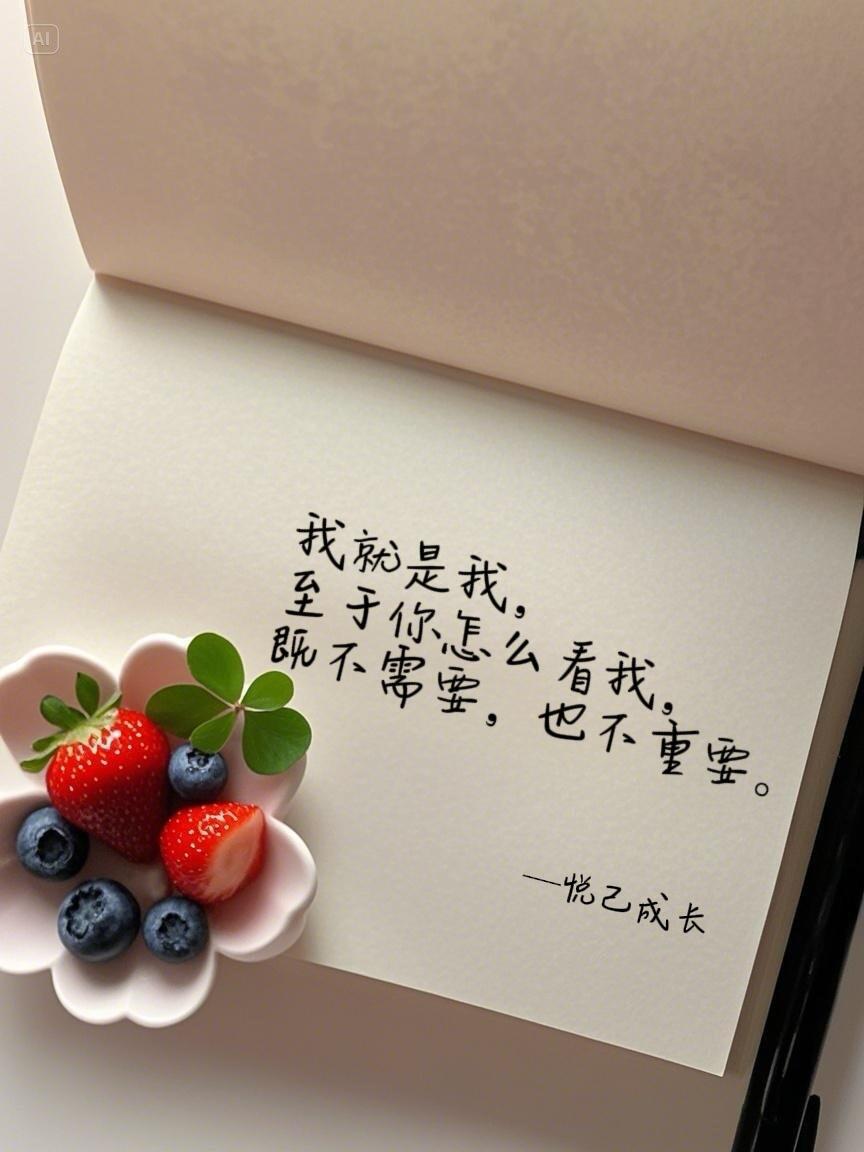 AI
我就是我，
至于你怎么看我，
既不需要，也不重要。
——悦己成长